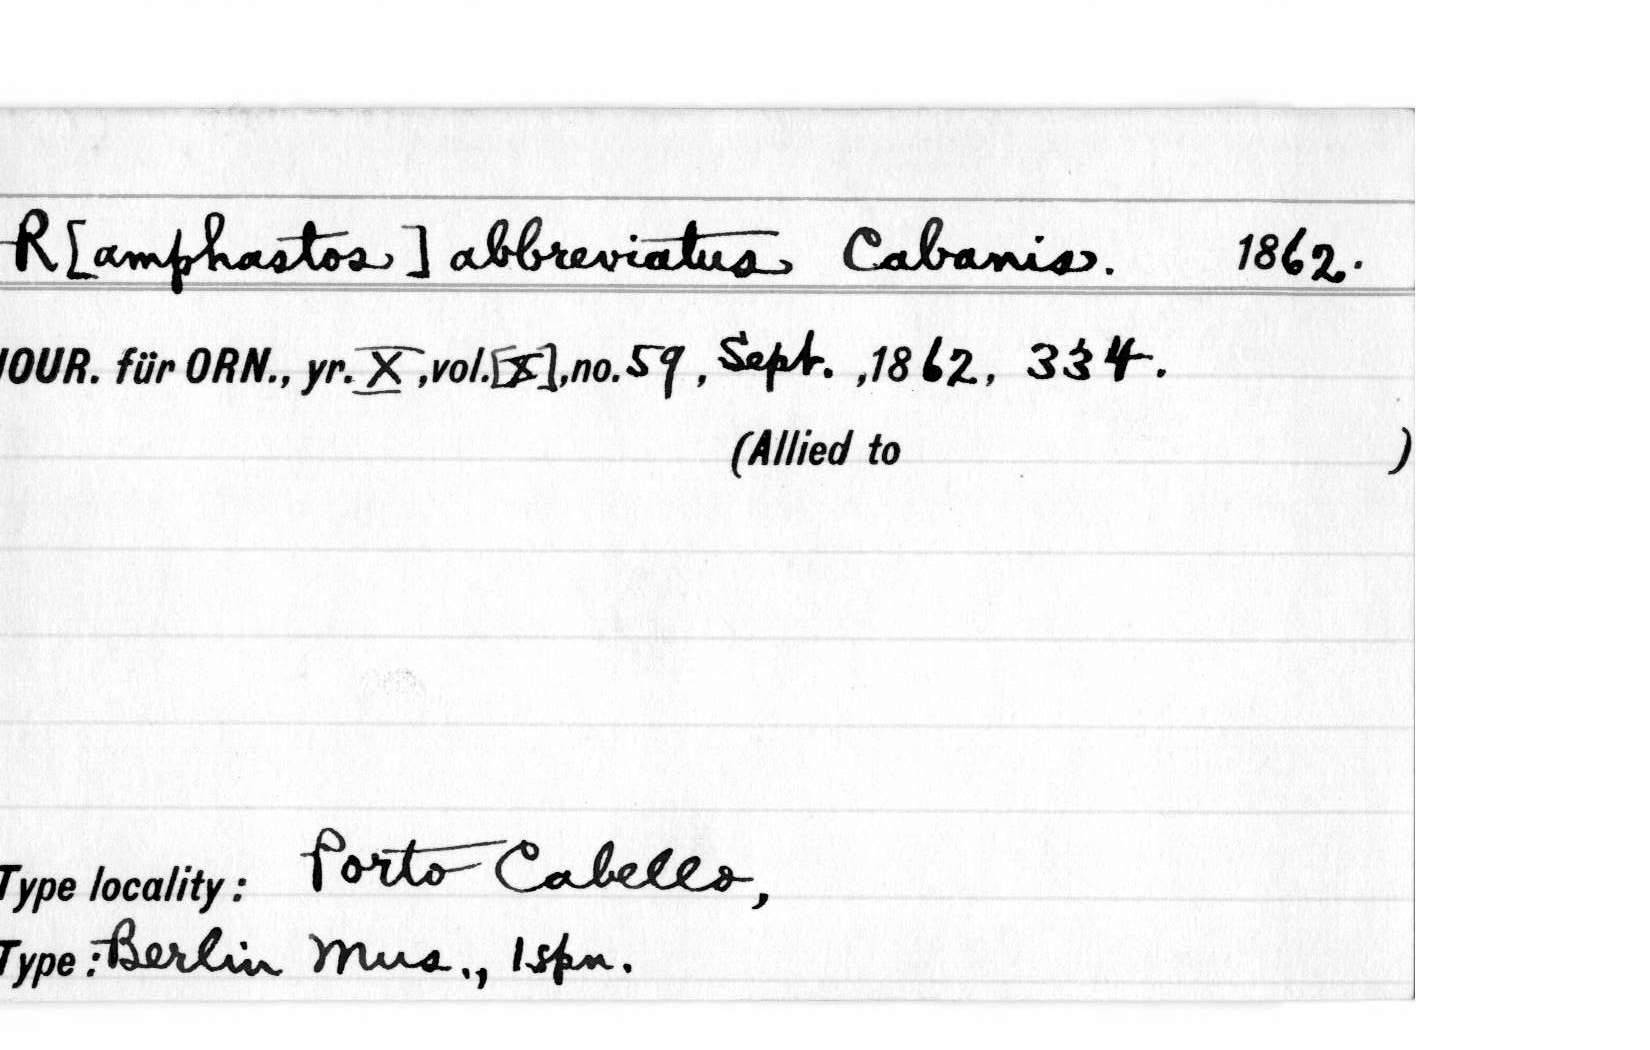 R[amphastos] abbreviatus Cabanis. 1862.
JOUR. für ORN., yr. X, vol. [X], no. 59, Sept., 1862, 334.
(Allied to )
Type locality: Porto Cabello,
Type: Berlin Mus., 1 spn.